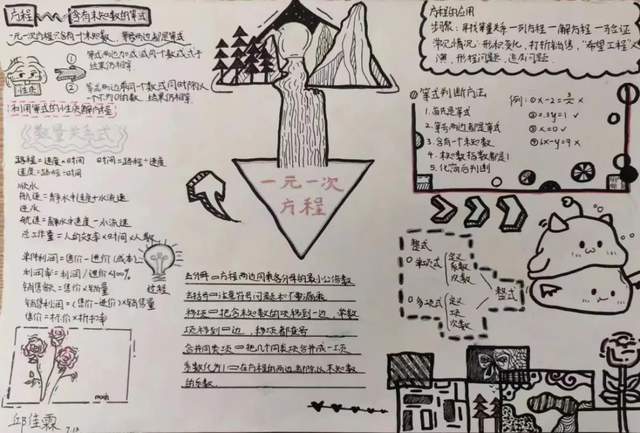 方程
含有未知数的等式
一元一次方程：只含有一个未知数，等号两边都是等式
性质
① 等式两边加(或减)同一个数或式子
结果仍相等
② 等式两边乘同一个数或同时除以
一个不为0的数，结果仍相等
利用等式的性质解方程
数量关系式
路程=速度×时间 时间=路程÷速度
速度=路程÷时间
顺水
航速=静水中速度+水流速
逆水
航速=静水中速度-水流速
总工作量=人均效率×时间×人数
单件利润=售价-进价(成本)
利润率=利润/进价×100%
销售额=售价×销售量
销售利润=(售价-进价)×销售量
售价=标价×折扣率
过程
邱佳霖
7.13
一元一次
方程
去分母⇒方程两边同乘各分母的最小公倍数
去括号⇒注意符号问题和不要漏乘
移项⇒把含未知数的项移到一边，常数
项移到一边，移项都变号
合并同类项⇒把几个同类项合并成一项
系数化为1⇒在方程的两边都除以未知数
的系数
方程的应用
步骤：寻找等量关系→列方程→解方程→写答证
常见情况：形积变化，打折销售，“希望工程”义
演，行程问题，追及问题
等式判断方法
1. 首先是等式
2. 等号两边都是等式
3. 含有一个未知数
4. 未知数指数都是1
5. 化简后判断
例：① x-2=3/x ×
② 0.3y=1 ✓
③ x=0 ✓
④ 6x-y=9 ×
整式
单项式 定义
系数
次数
多项式 定义
项
次数
整式